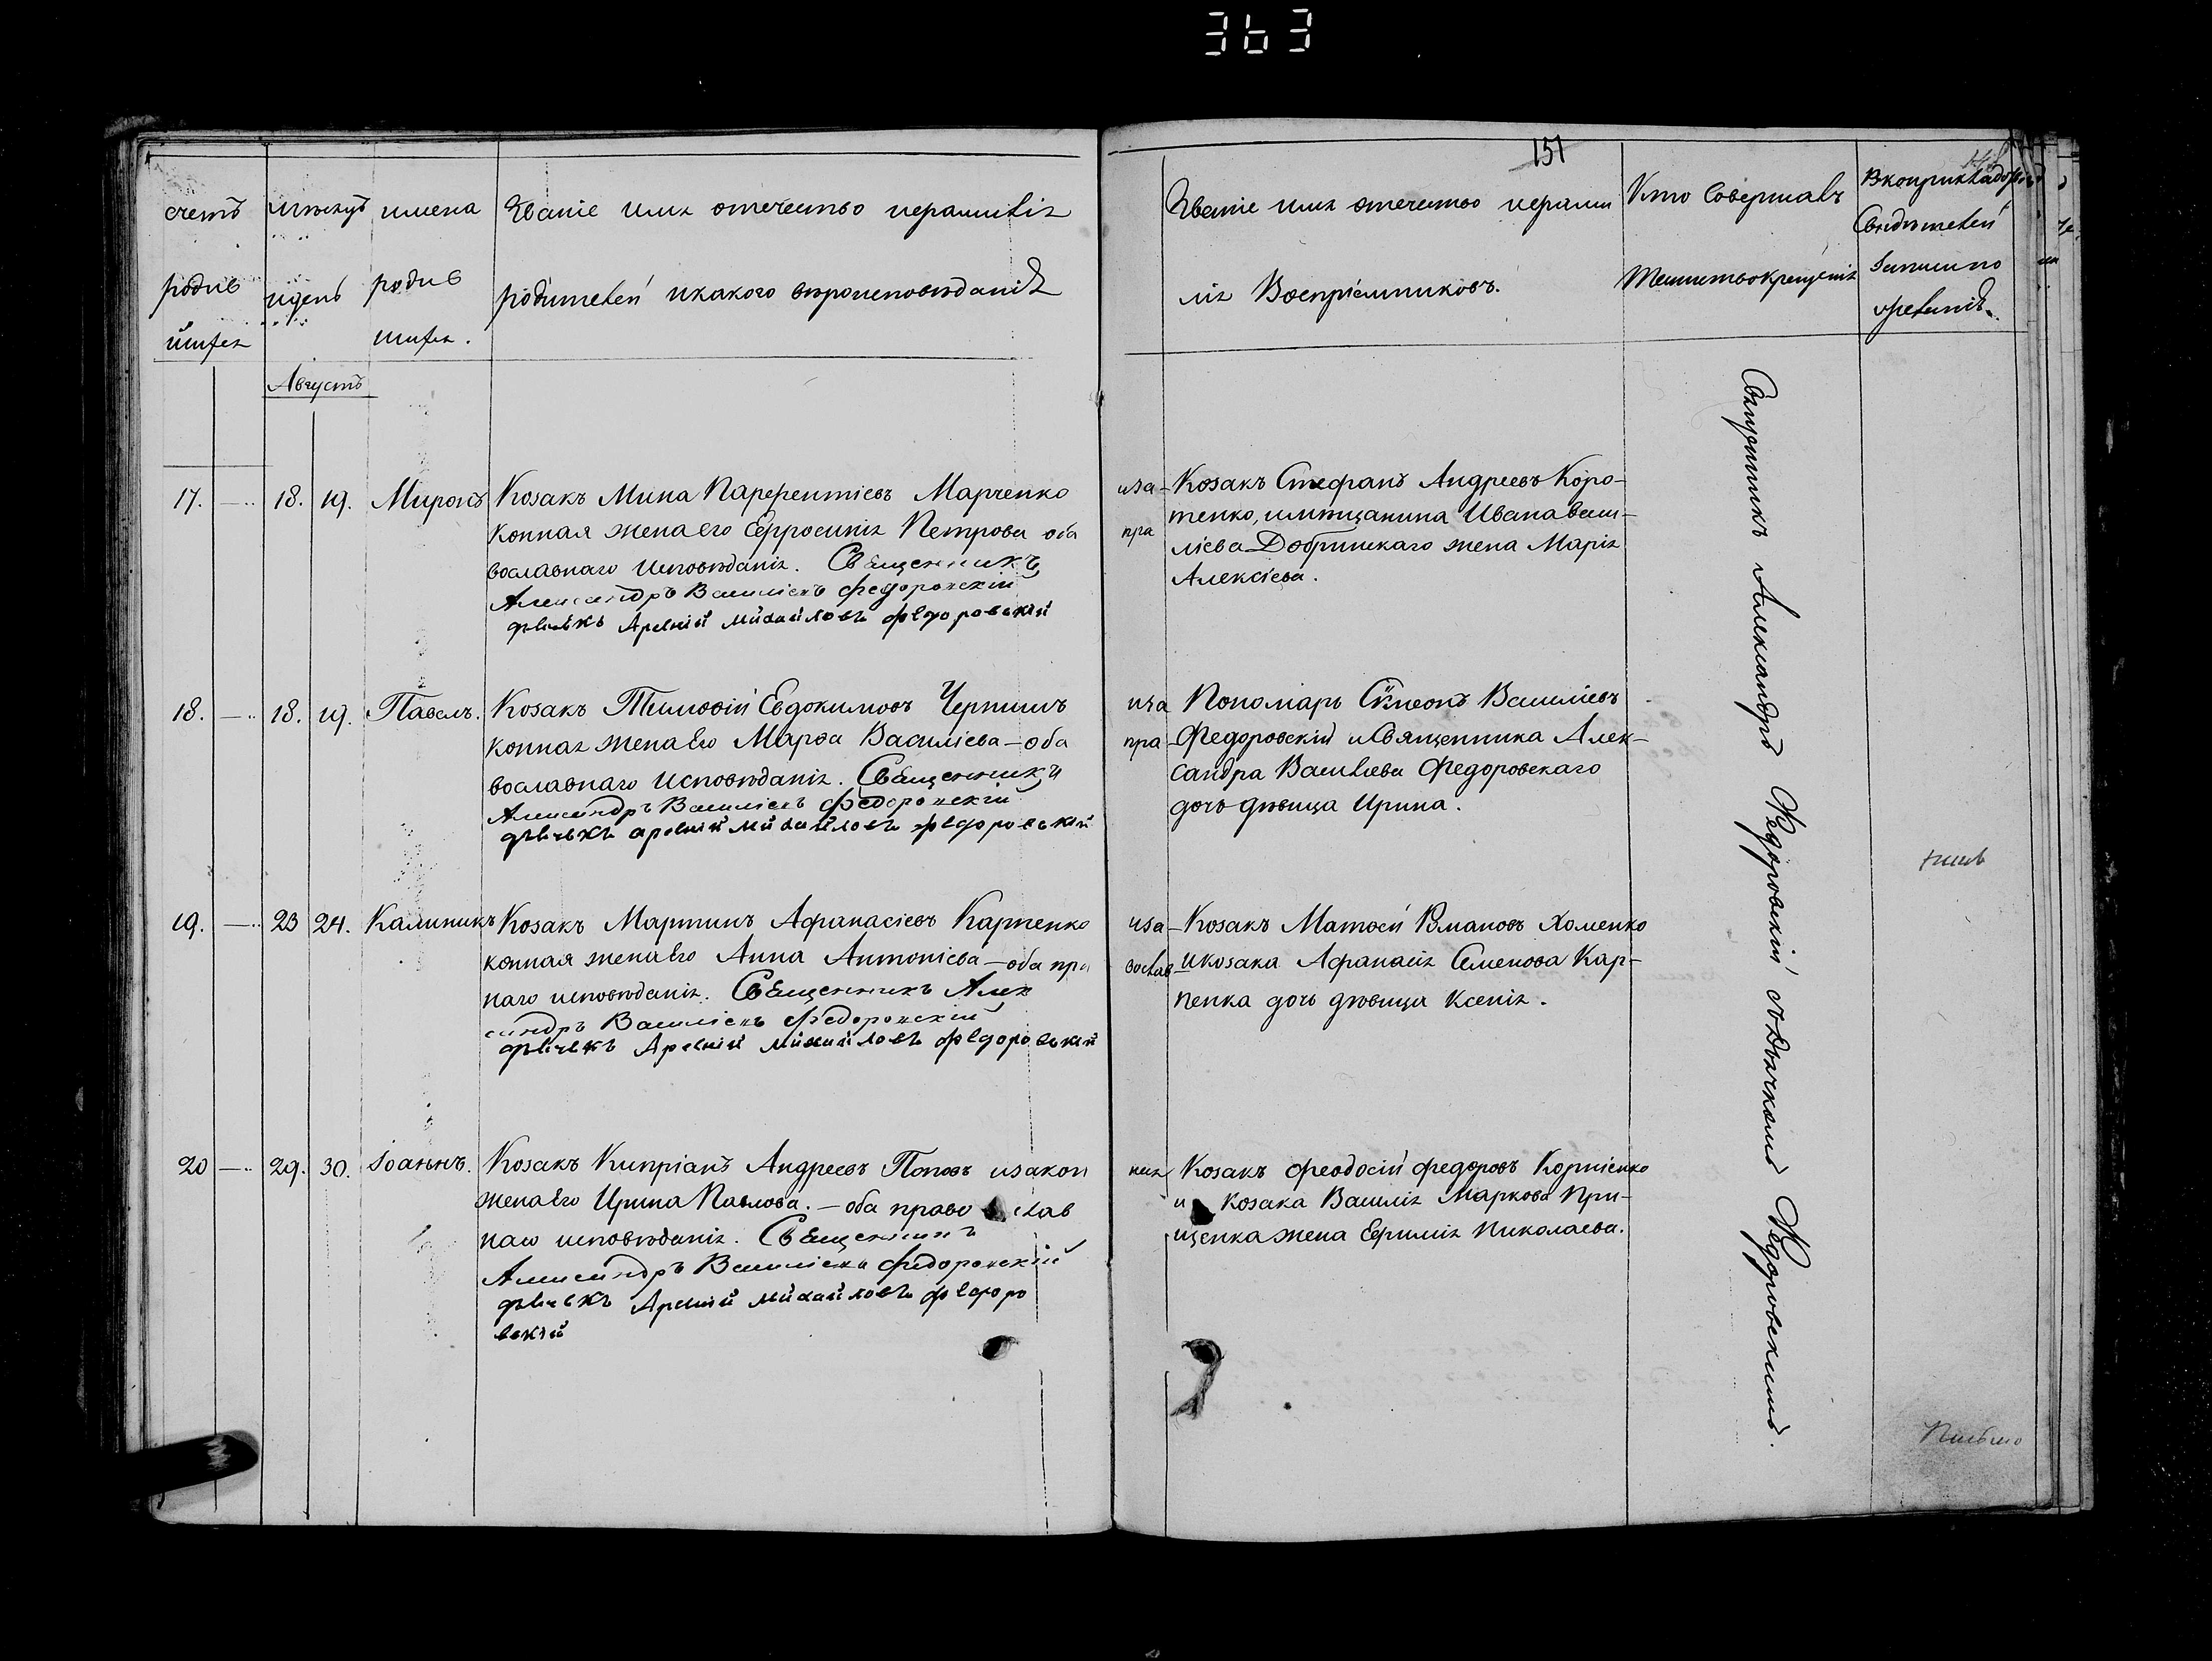 363
151
счетъ мѣсяцъ имена Званіе имя отечество ифамилія
родив идень родив родителей икакого вѣроисповѣданія
шихся шихся.
Званіе имя отечество ифами
лія Воспріемниковъ.
Кто Совершалъ
Таинство крещенія
Свидѣтелей
записи по
желанію.
Августъ
17. 18. 19. Миронъ Козакъ Мина Парфентіевъ Марченко иза
конная жена его Евфросинія Петрова оба пра
вославнаго исповѣданія. Священникъ
Александръ Василіевъ Федоровскій
дьячекъ Арсеній Михайловъ федоровскій
Козакъ Стефанъ Андреевъ Коро-
тенко, имѣщанина Ивана Васи-
лієва Добринскаго жена Марія
Алексієва.
18. 18. 19. Павелъ. Козакъ Тимоѳій Евдокимовъ Чернишъ иза
конная жена его Марѳа Василієва - оба пра
вославнаго исповѣданія. Священникъ
Александръ Василіевъ Федоровскій
дьячекъ арсеній Михайловъ федоровскій
Пономарь Сѵмеонъ Василіевъ
Федоровскій иСвященника Алек-
сандра Василієва Федоровскаго
дочь дѣвица Ирина.
19. 23 24. Калиникъ Козакъ Мартинъ Афанасіевъ Карпенко иза
конная жена его Анна Антоніева - оба пра вослав
наго исповѣданія. Священникъ Алек
сандръ Василіевъ Федоровскій
дьячекъ Арсеній Михайловъ федоровскій
Козакъ Матѳей Романовъ Хоменко
икозака Афанасія Семенова Кар-
пенка дочь дѣвица Ксенія.
20 29. 30. Іоаннъ. Козакъ Кипріанъ Андреевъ Поповъ изакон ная
жена его Ирина Павлова. - оба православ
наго исповѣданія. Священникъ
Александръ Василіевъ Федоровскій
дьячекъ Арсеній Михайловъ федоро
вскій
Козакъ Феодосій федоровъ Корніенко
и Козака Василія Маркова При-
щенка жена Евфимія Николаева.
Священникъ Александръ Федоровскій съ дьячкомъ Федоровскимъ.